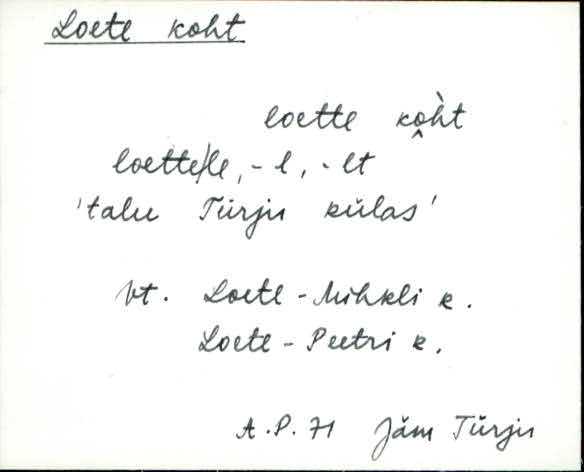 Loete koht
loette ko̭h̀t
loette/le, -l, -lt
'talu Türju külas'
vt. Loete-Mihkli k.
Loete-Peetri k.
A.P. 71 Jäm Türju